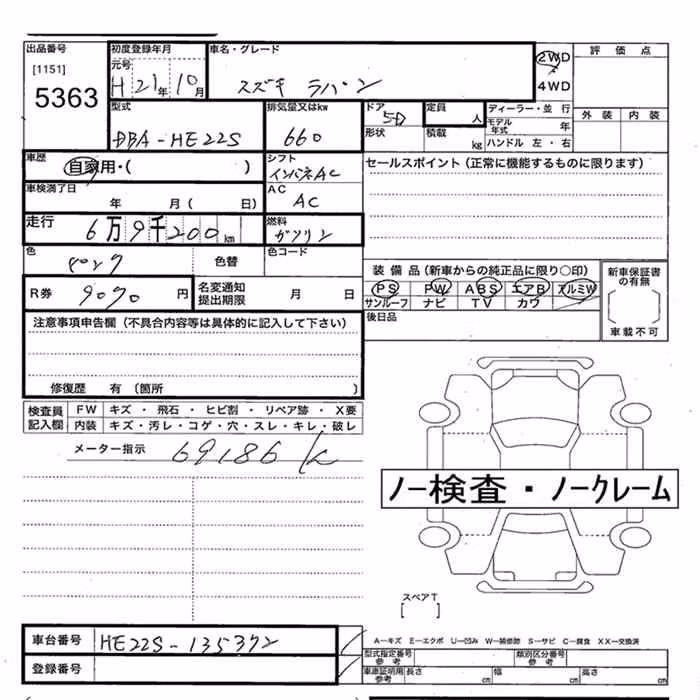 出品番号 初度登録年月 車名・グレード 評価点
[1151] 元号 2WD
5363 H21年10月 スズキ ラパン 4WD
型式 排気量又はkw ドア 定員 ディーラー・並行 外装 内装
DBA-HE22S 660 5D 人 モデル年式 年
形状 積載 kg ハンドル 左・右
車歴 自家用・( ) シフト インパネAC セールスポイント(正常に機能するものに限ります)
車検満了日 年 月( 日) AC AC
走行 6万9千200km 燃料 ガソリン
色 色替 色コード 装備品(新車からの純正品に限り○印) 新車保証書の有無
ピンク PS PW ABS エアB アルミW
R券 9070円 名変通知提出期限 月 日 サンルーフ ナビ TV カワ
注意事項申告欄(不具合内容等は具体的に記入して下さい) 後日品 車載不可
修復歴 有(箇所 )
検査員記入欄 FW キズ・飛石・ヒビ割・リペア跡・X要
内装 キズ・汚レ・コゲ・穴・スレ・キレ・破レ
メーター指示 69186 K
ノー検査・ノークレーム
スペアT
[ ]
車台番号 HE22S-135372 A−キズ E−エクボ U−凹み W−補修跡 S−サビ C−腐食 XX−交換済
登録番号 型式指定番号 参考 類別区分番号 参考
車庫証明用 参考 長さ cm 幅 cm 高さ cm